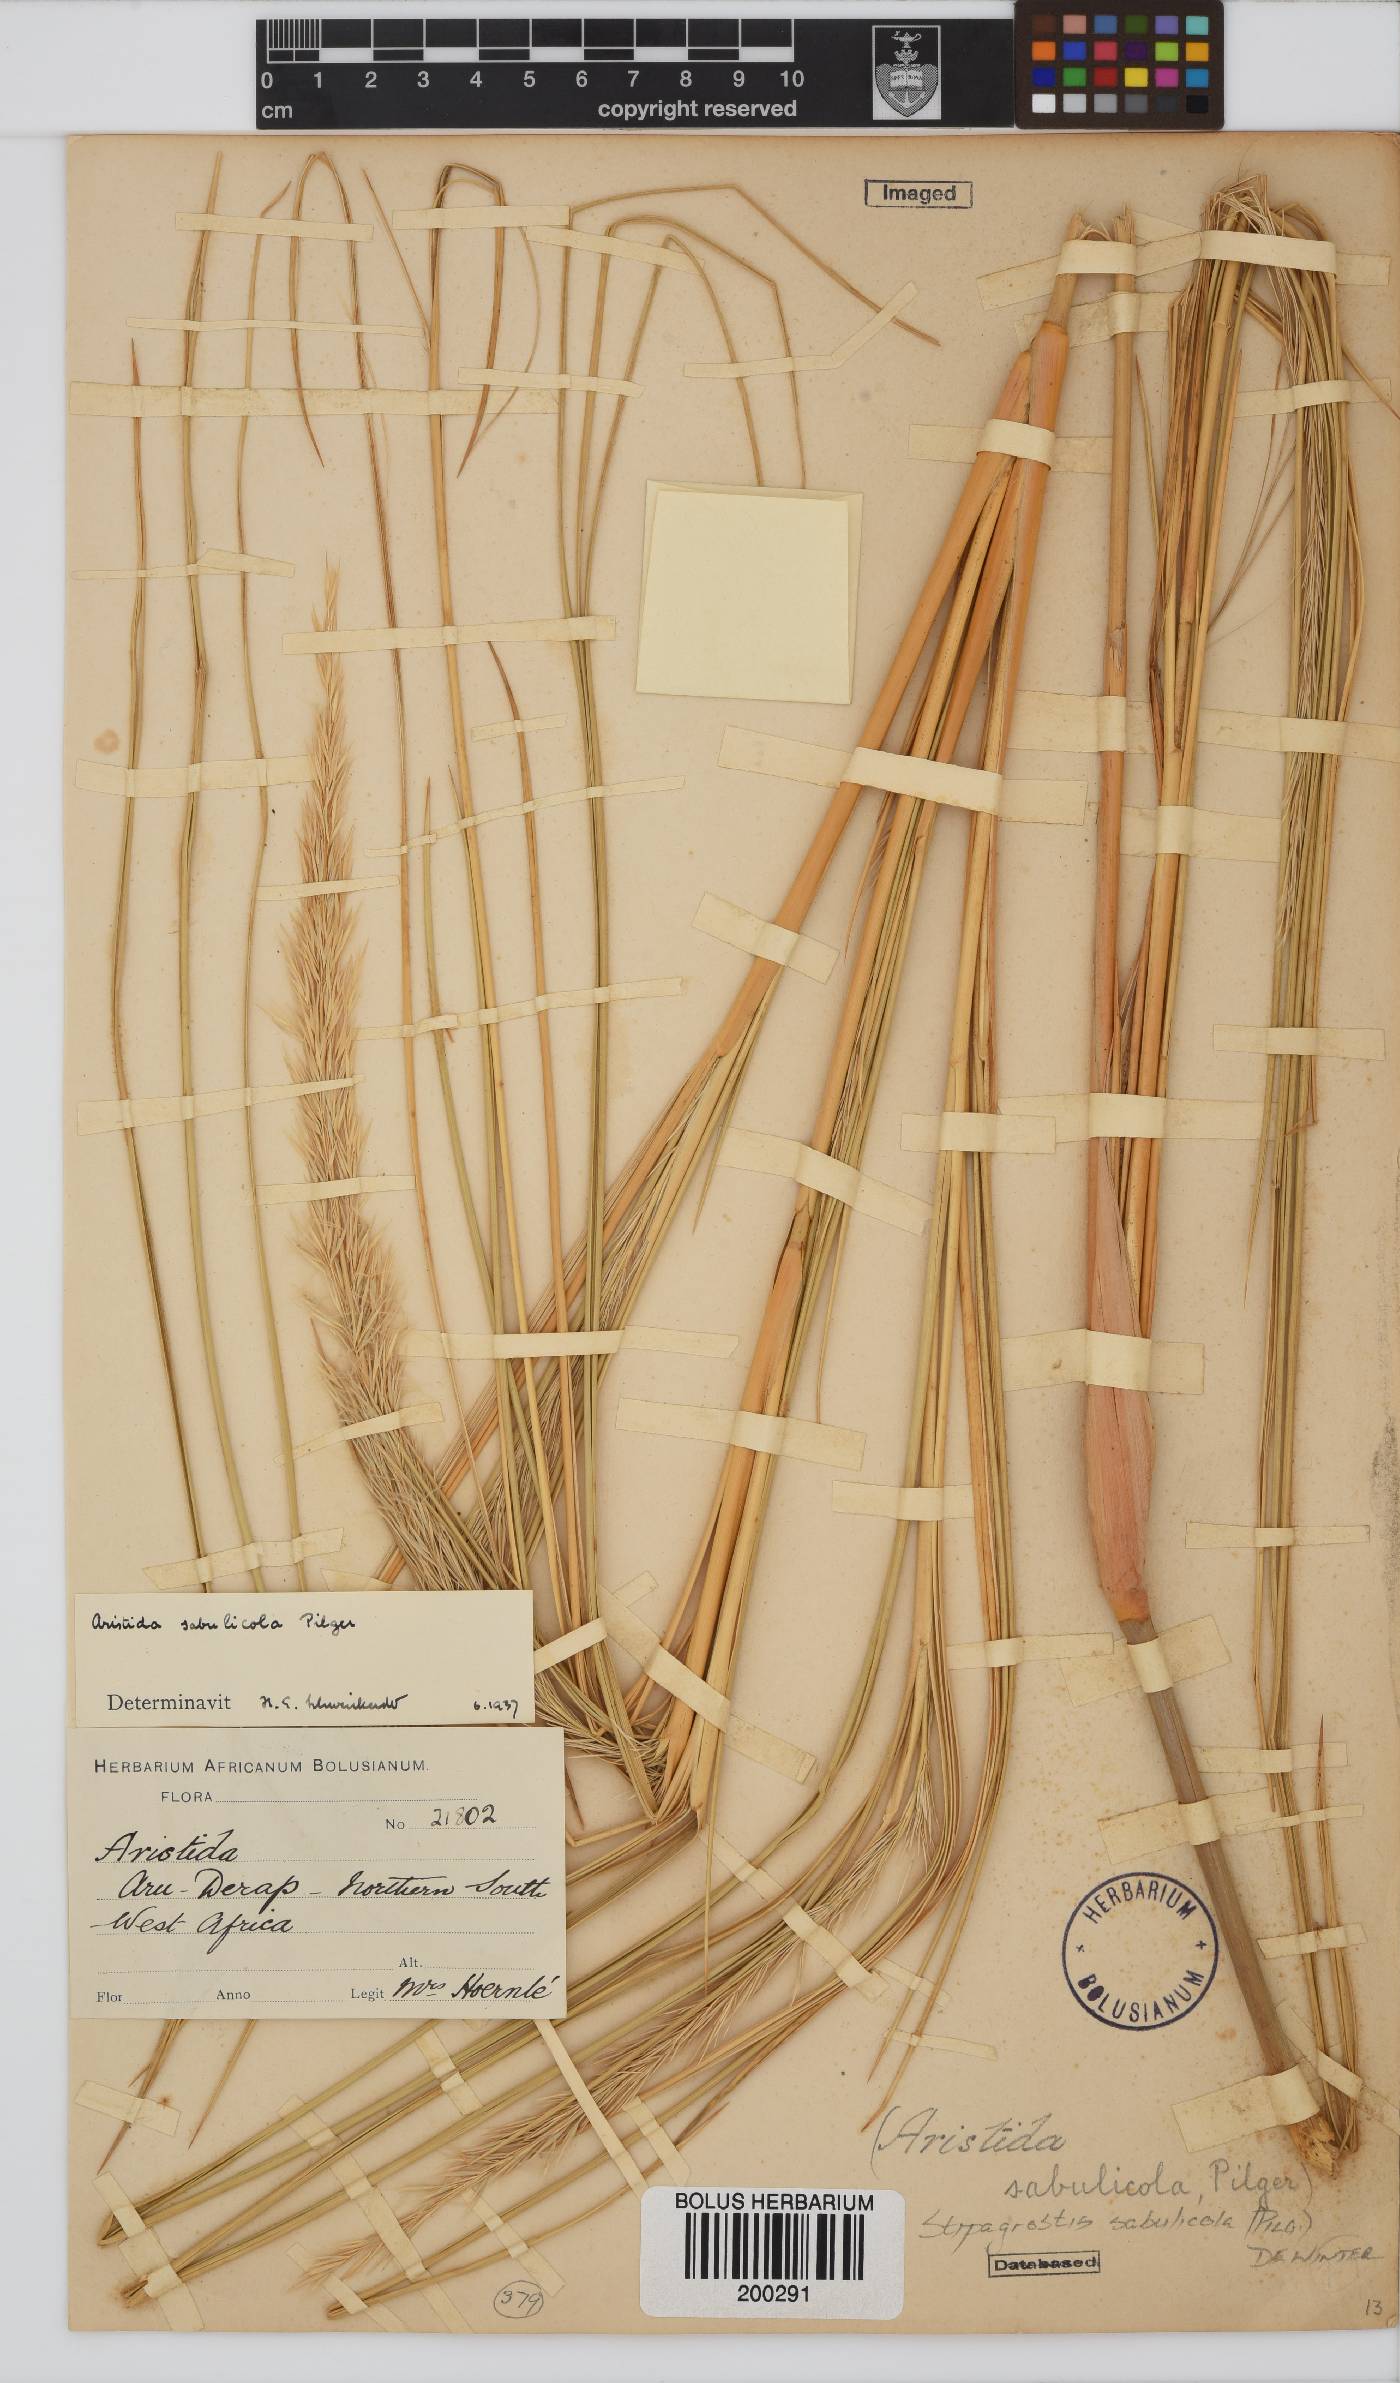 0 1 2 3 4 5 6 7 8 9 10
cm
copyright reserved
Imaged
Aristida sabulicola Pilger
Determinavit H. E. Schweickerdt 6.1937
HERBARIUM AFRICANUM BOLUSIANUM.
FLORA
No 21802
Aristida
Aru-Derap - Northern South
West Africa
Alt.
Flor Anno Legit Mrs Hoernlé
HERBARIUM
BOLUSIANUM
(Aristida
sabulicola, Pilger)
Stipagrostis sabulicola (PILG.)
DE WINTER
Databased
BOLUS HERBARIUM
200291
379
13